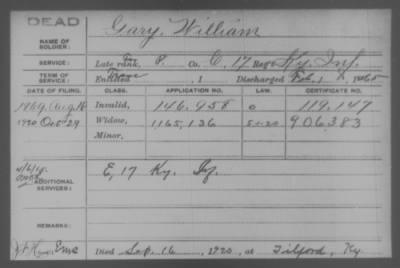 DEAD
NAME OF SOLDIER: Gary, William
SERVICE: Late rank, P. Co. C, 17 Reg't Ky. Inf.
TERM OF SERVICE: Enlisted , 1 Discharged Feb. 1865
DATE OF FILING. CLASS. APPLICATION NO. LAW. CERTIFICATE NO.
1869 Aug 16 Invalid, 146.958 0 119.147
1920 Oct 29 Widow, 1165,136 5-1-20 906383
Minor,
ADDITIONAL SERVICES: E, 17 Ky. Inf.
REMARKS:
Died Sep. 16, 1920, at Tilford, Ky